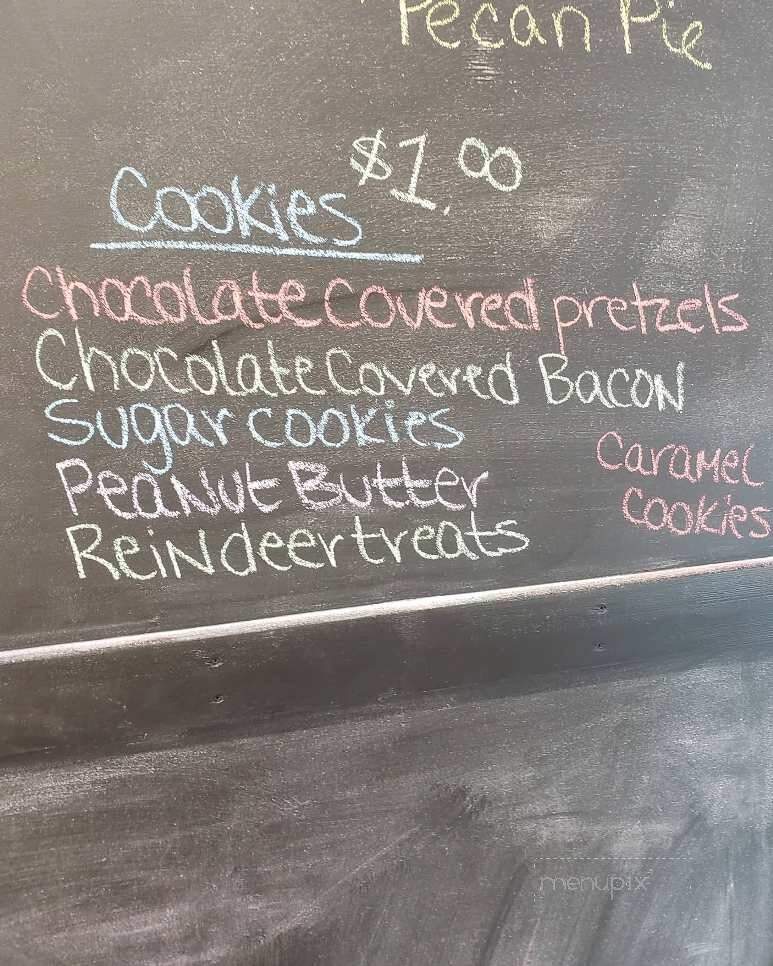 Pecan Pie
$1.00
Cookies
Chocolate Covered pretzels
Chocolate Covered Bacon
Sugar cookies
Peanut Butter
Caramel
Cookies
Reindeer treats
menupix